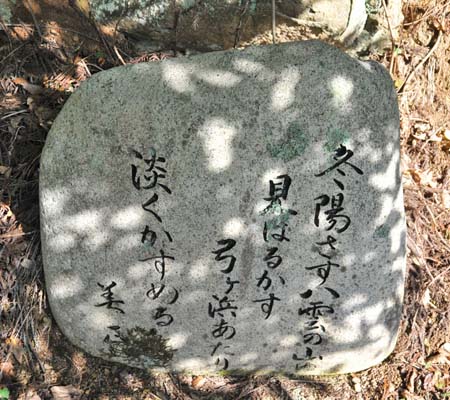 冬陽さす八雲の山
見はるかす
弓ヶ浜あたり
淡くかすめる
美